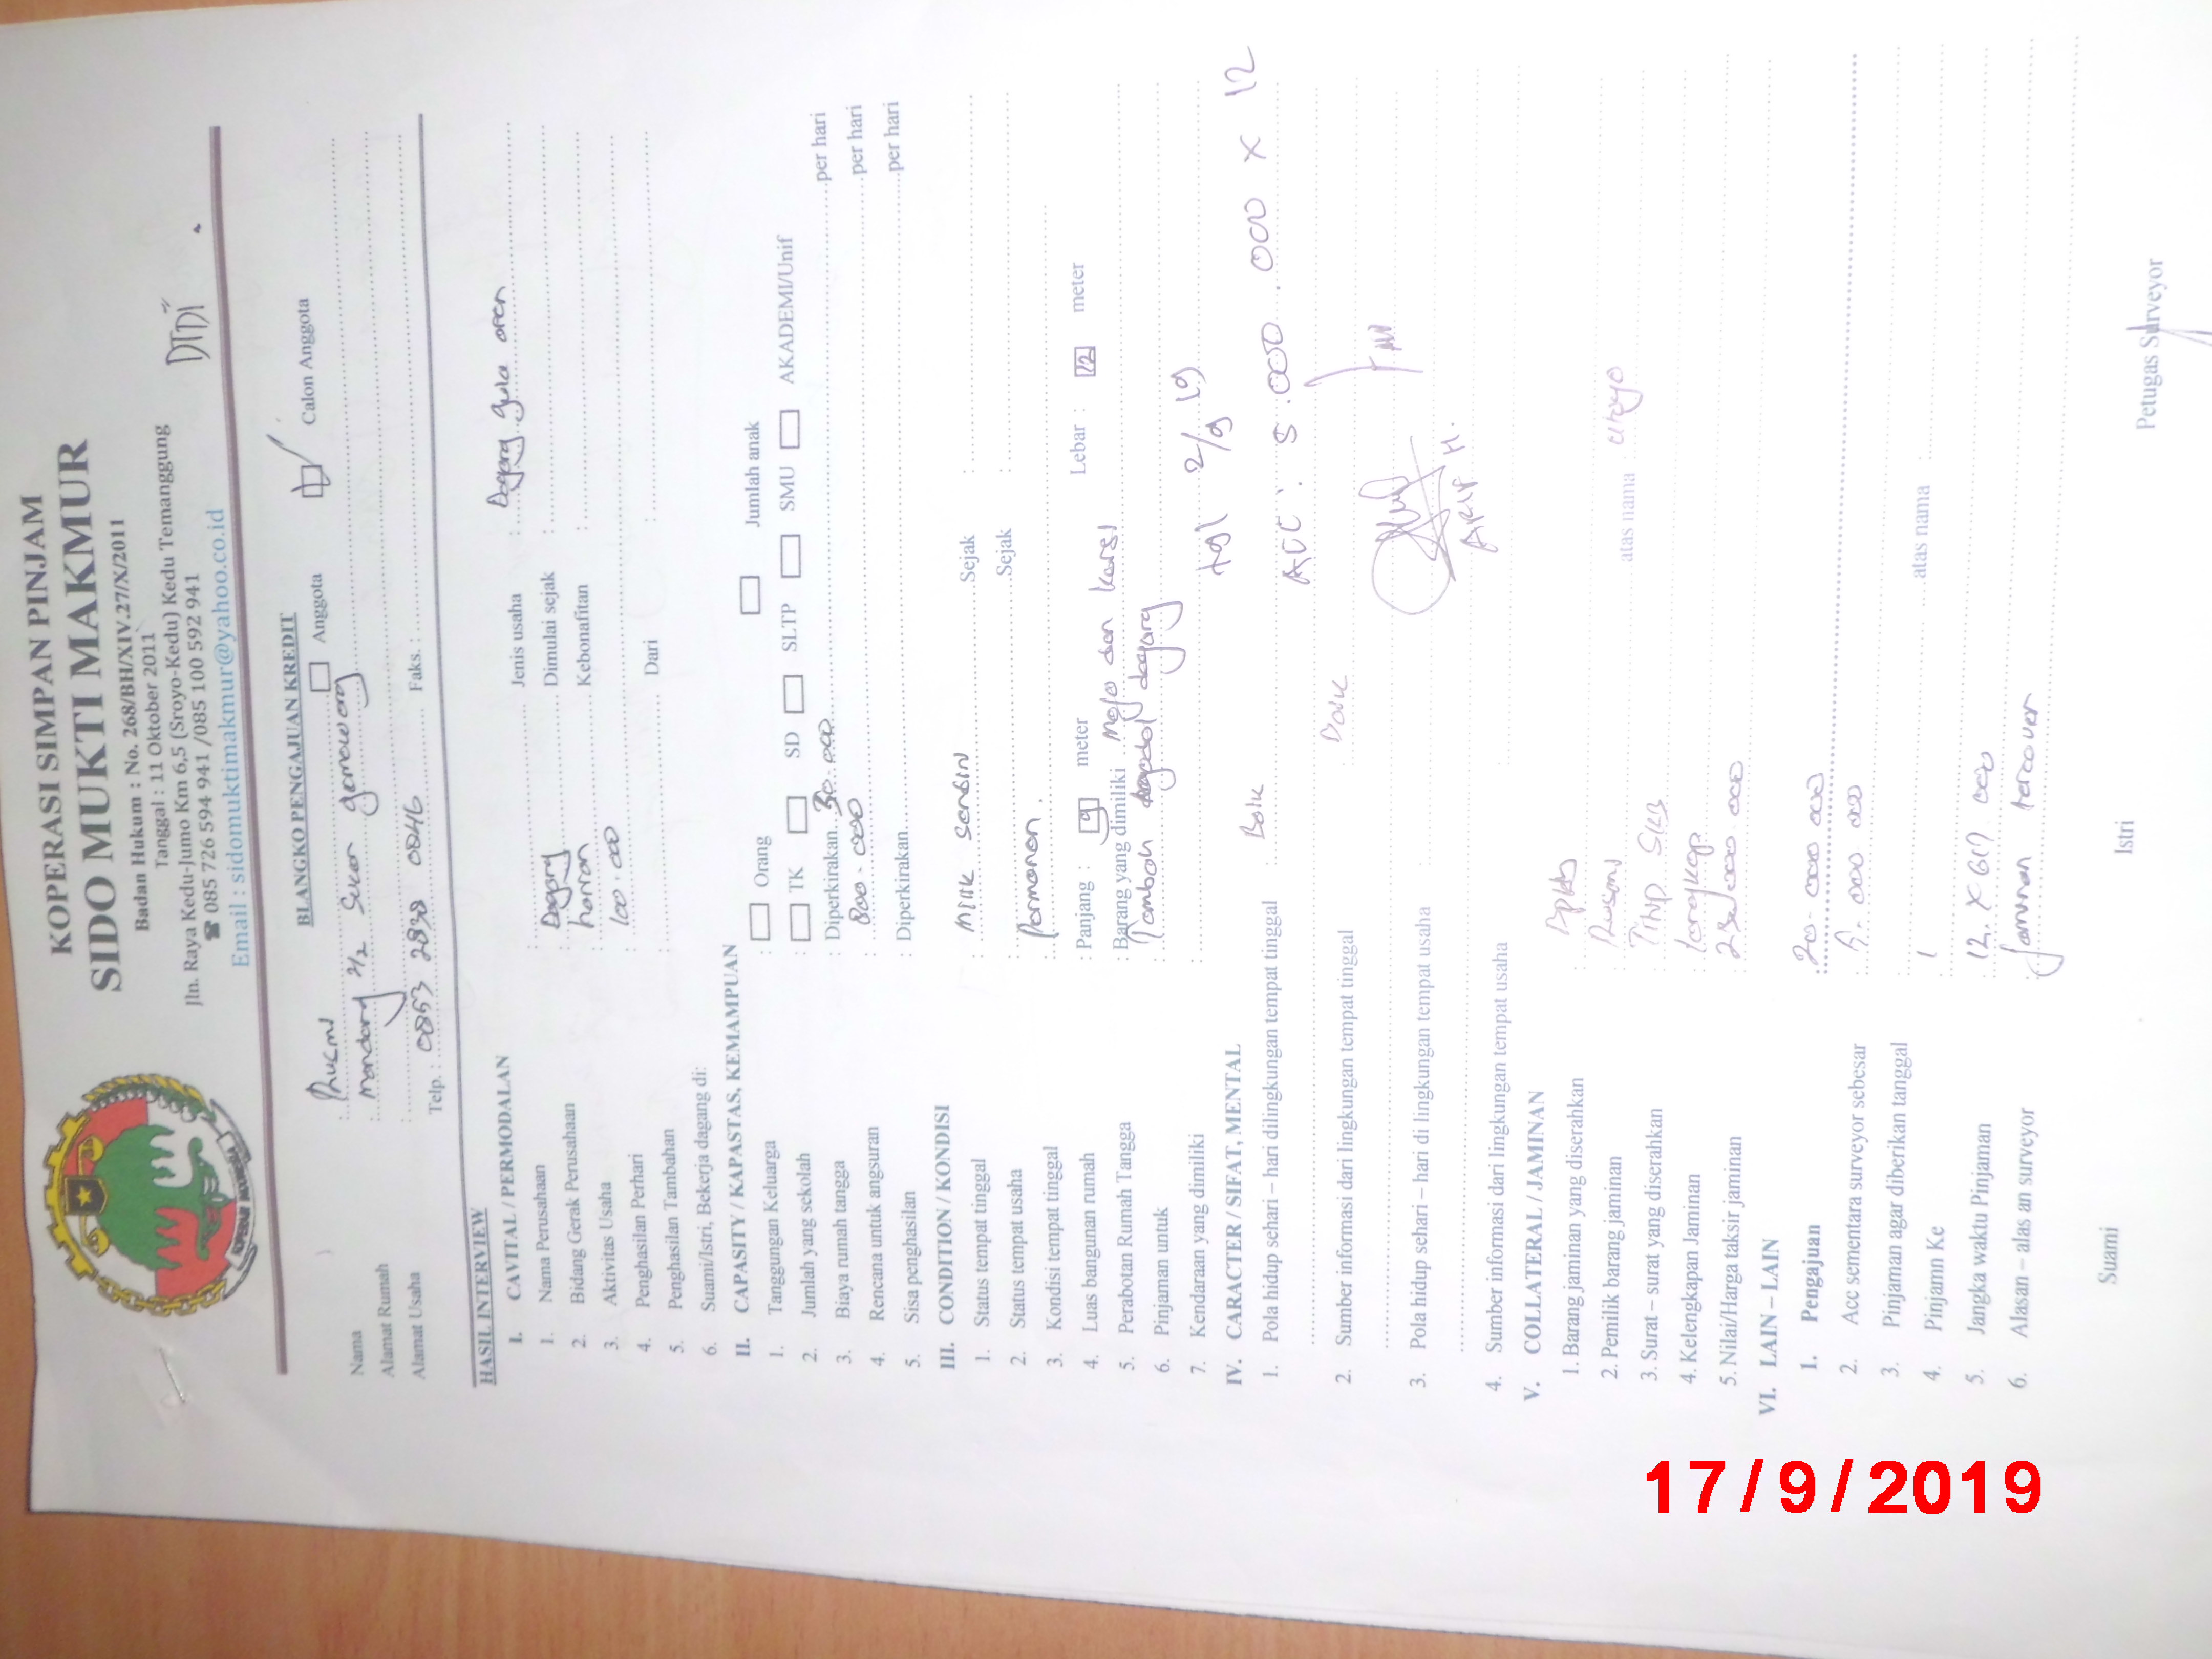 KOPERASI SIMPAN PINJAM
SIDO MUKTI MAKMUR
Badan Hukum : No. 268/BH/XIV.27/X/2011
Tanggal : 11 Oktober 2011
Jln. Raya Kedu-Jumo Km 6,5 (Sroyo-Kedu) Kedu Temanggung
☎ 085 726 594 941 /085 100 592 941
Email : sidomuktimakmur@yahoo.co.id
KOPERASI INDONESIA
BLANGKO PENGAJUAN KREDIT
Anggota Calon Anggota
Nama :
Alamat Rumah : 2/2
Alamat Usaha :
Telp. : 0853 2838 0046 Faks. :
HASIL INTERVIEW
I. CAVITAL / PERMODALAN
1. Nama Perusahaan : Jenis usaha : Dagang gula aren
2. Bidang Gerak Perusahaan : Dagang Dimulai sejak :
3. Aktivitas Usaha : harian Kebonafitan :
4. Penghasilan Perhari : 100.000
5. Penghasilan Tambahan : Dari :
6. Suami/Istri, Bekerja dagang di:
II. CAPASITY / KAPASTAS, KEMAMPUAN
1. Tanggungan Keluarga : Orang Jumlah anak
2. Jumlah yang sekolah : TK SD SLTP SMU AKADEMI/Unif
3. Biaya rumah tangga : Diperkirakan 30.000 per hari
4. Rencana untuk angsuran : 800.000 per hari
5. Sisa penghasilan : Diperkirakan per hari
III. CONDITION / KONDISI
1. Status tempat tinggal : milik sendiri Sejak :
2. Status tempat usaha : Sejak :
3. Kondisi tempat tinggal : Permanen.
4. Luas bangunan rumah : Panjang : 9 meter Lebar : 12 meter
5. Perabotan Rumah Tangga : Barang yang dimiliki meja dan kursi
6. Pinjaman untuk : Tambah dagang
7. Kendaraan yang dimiliki :
tgl 2/9 19
IV. CARACTER / SIFAT, MENTAL
1. Pola hidup sehari – hari dilingkungan tempat tinggal : Baik
ACC : 5.000.000 x 12
2. Sumber informasi dari lingkungan tempat tinggal : Baik
3. Pola hidup sehari – hari di lingkungan tempat usaha
ARIF H.
4. Sumber informasi dari lingkungan tempat usaha
V. COLLATERAL / JAMINAN
1. Barang jaminan yang diserahkan : Bpkb
2. Pemilik barang jaminan :
3. Surat – surat yang diserahkan : atas nama
4. Kelengkapan Jaminan : lengkap
5. Nilai/Harga taksir jaminan :
VI. LAIN – LAIN
1. Pengajuan : 20.000 000
2. Acc sementara surveyor sebesar : 5.000 000
3. Pinjaman agar diberikan tanggal :
4. Pinjamn Ke : 1 atas nama :
5. Jangka waktu Pinjaman : 12 x 617 000
6. Alasan – alas an surveyor : Jaminan tercover
Suami Istri Petugas Surveyor
17/9/2019